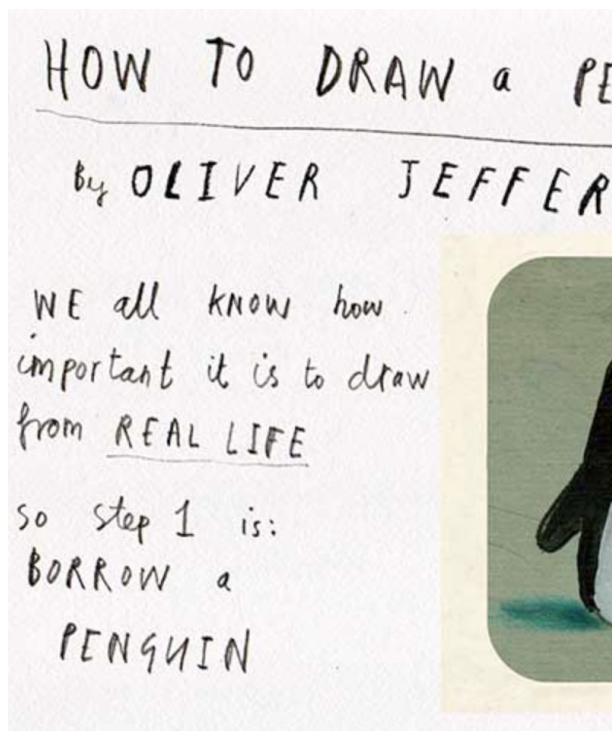 HOW TO DRAW a PE
By OLIVER JEFFER
WE all KNOW how
important it is to draw
from REAL LIFE
so step 1 is:
BORROW a
PENGUIN